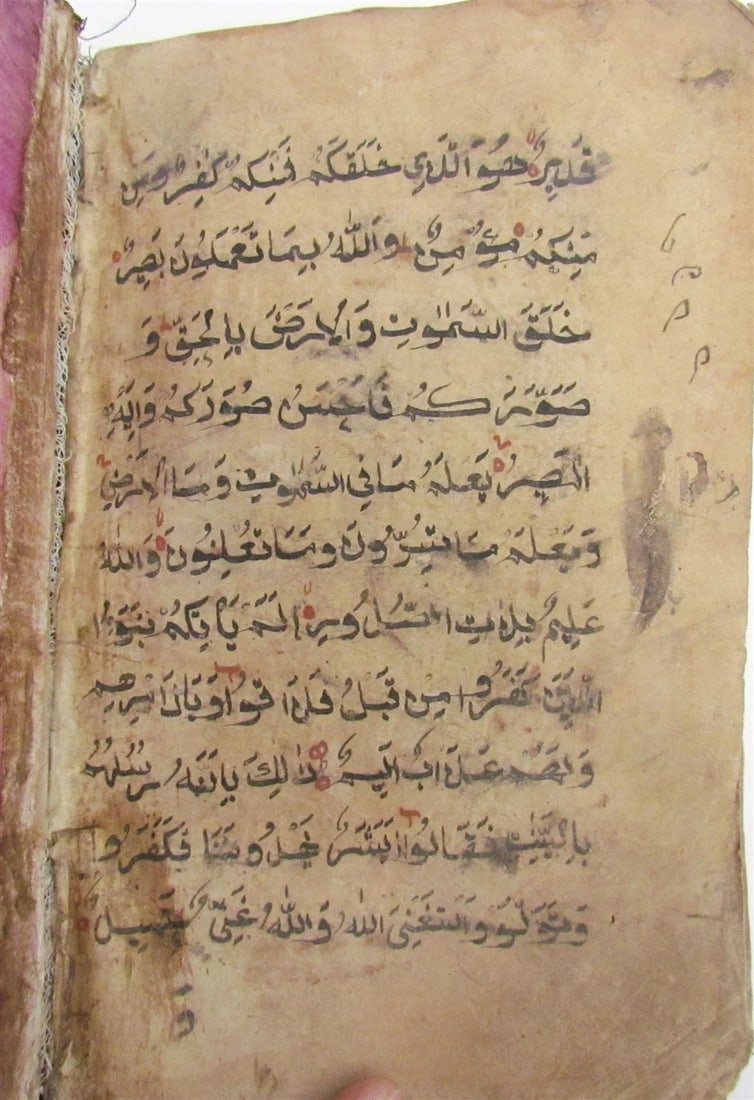 قَدِيرٌ هُوَ الَّذِي خَلَقَكُمْ فَمِنْكُمْ كٰفِرٌ وَ
مِنْكُمْ مُؤْمِنٌ وَاللّٰهُ بِمَا تَعْمَلُونَ بَصِيرٌ
خَلَقَ السَّمٰوٰتِ وَالْاَرْضَ بِالْحَقِّ وَ
صَوَّرَكُمْ فَاَحْسَنَ صُوَرَكُمْ وَاِلَيْهِ
الْمَصِيرُ يَعْلَمُ مَا فِي السَّمٰوٰتِ وَمَا الْاَرْضِ
وَيَعْلَمُ مَا تُسِرُّونَ وَمَا تُعْلِنُونَ وَاللّٰهُ
عَلِيمٌ بِذَاتِ الصُّدُورِ اَلَمْ يَاْتِكُمْ نَبَؤُا
الَّذِينَ كَفَرُوا مِنْ قَبْلُ فَذَاقُوا وَبَالَ اَمْرِهِمْ
وَلَهُمْ عَذَابٌ اَلِيمٌ ذٰلِكَ بِاَنَّهُ رُسُلُهُمْ
بِالْبَيِّنٰتِ فَقَالُوا اَبَشَرٌ يَهْدُونَنَا فَكَفَرُوا
وَتَوَلَّوْا وَاسْتَغْنَى اللّٰهُ وَاللّٰهُ غَنِيٌّ